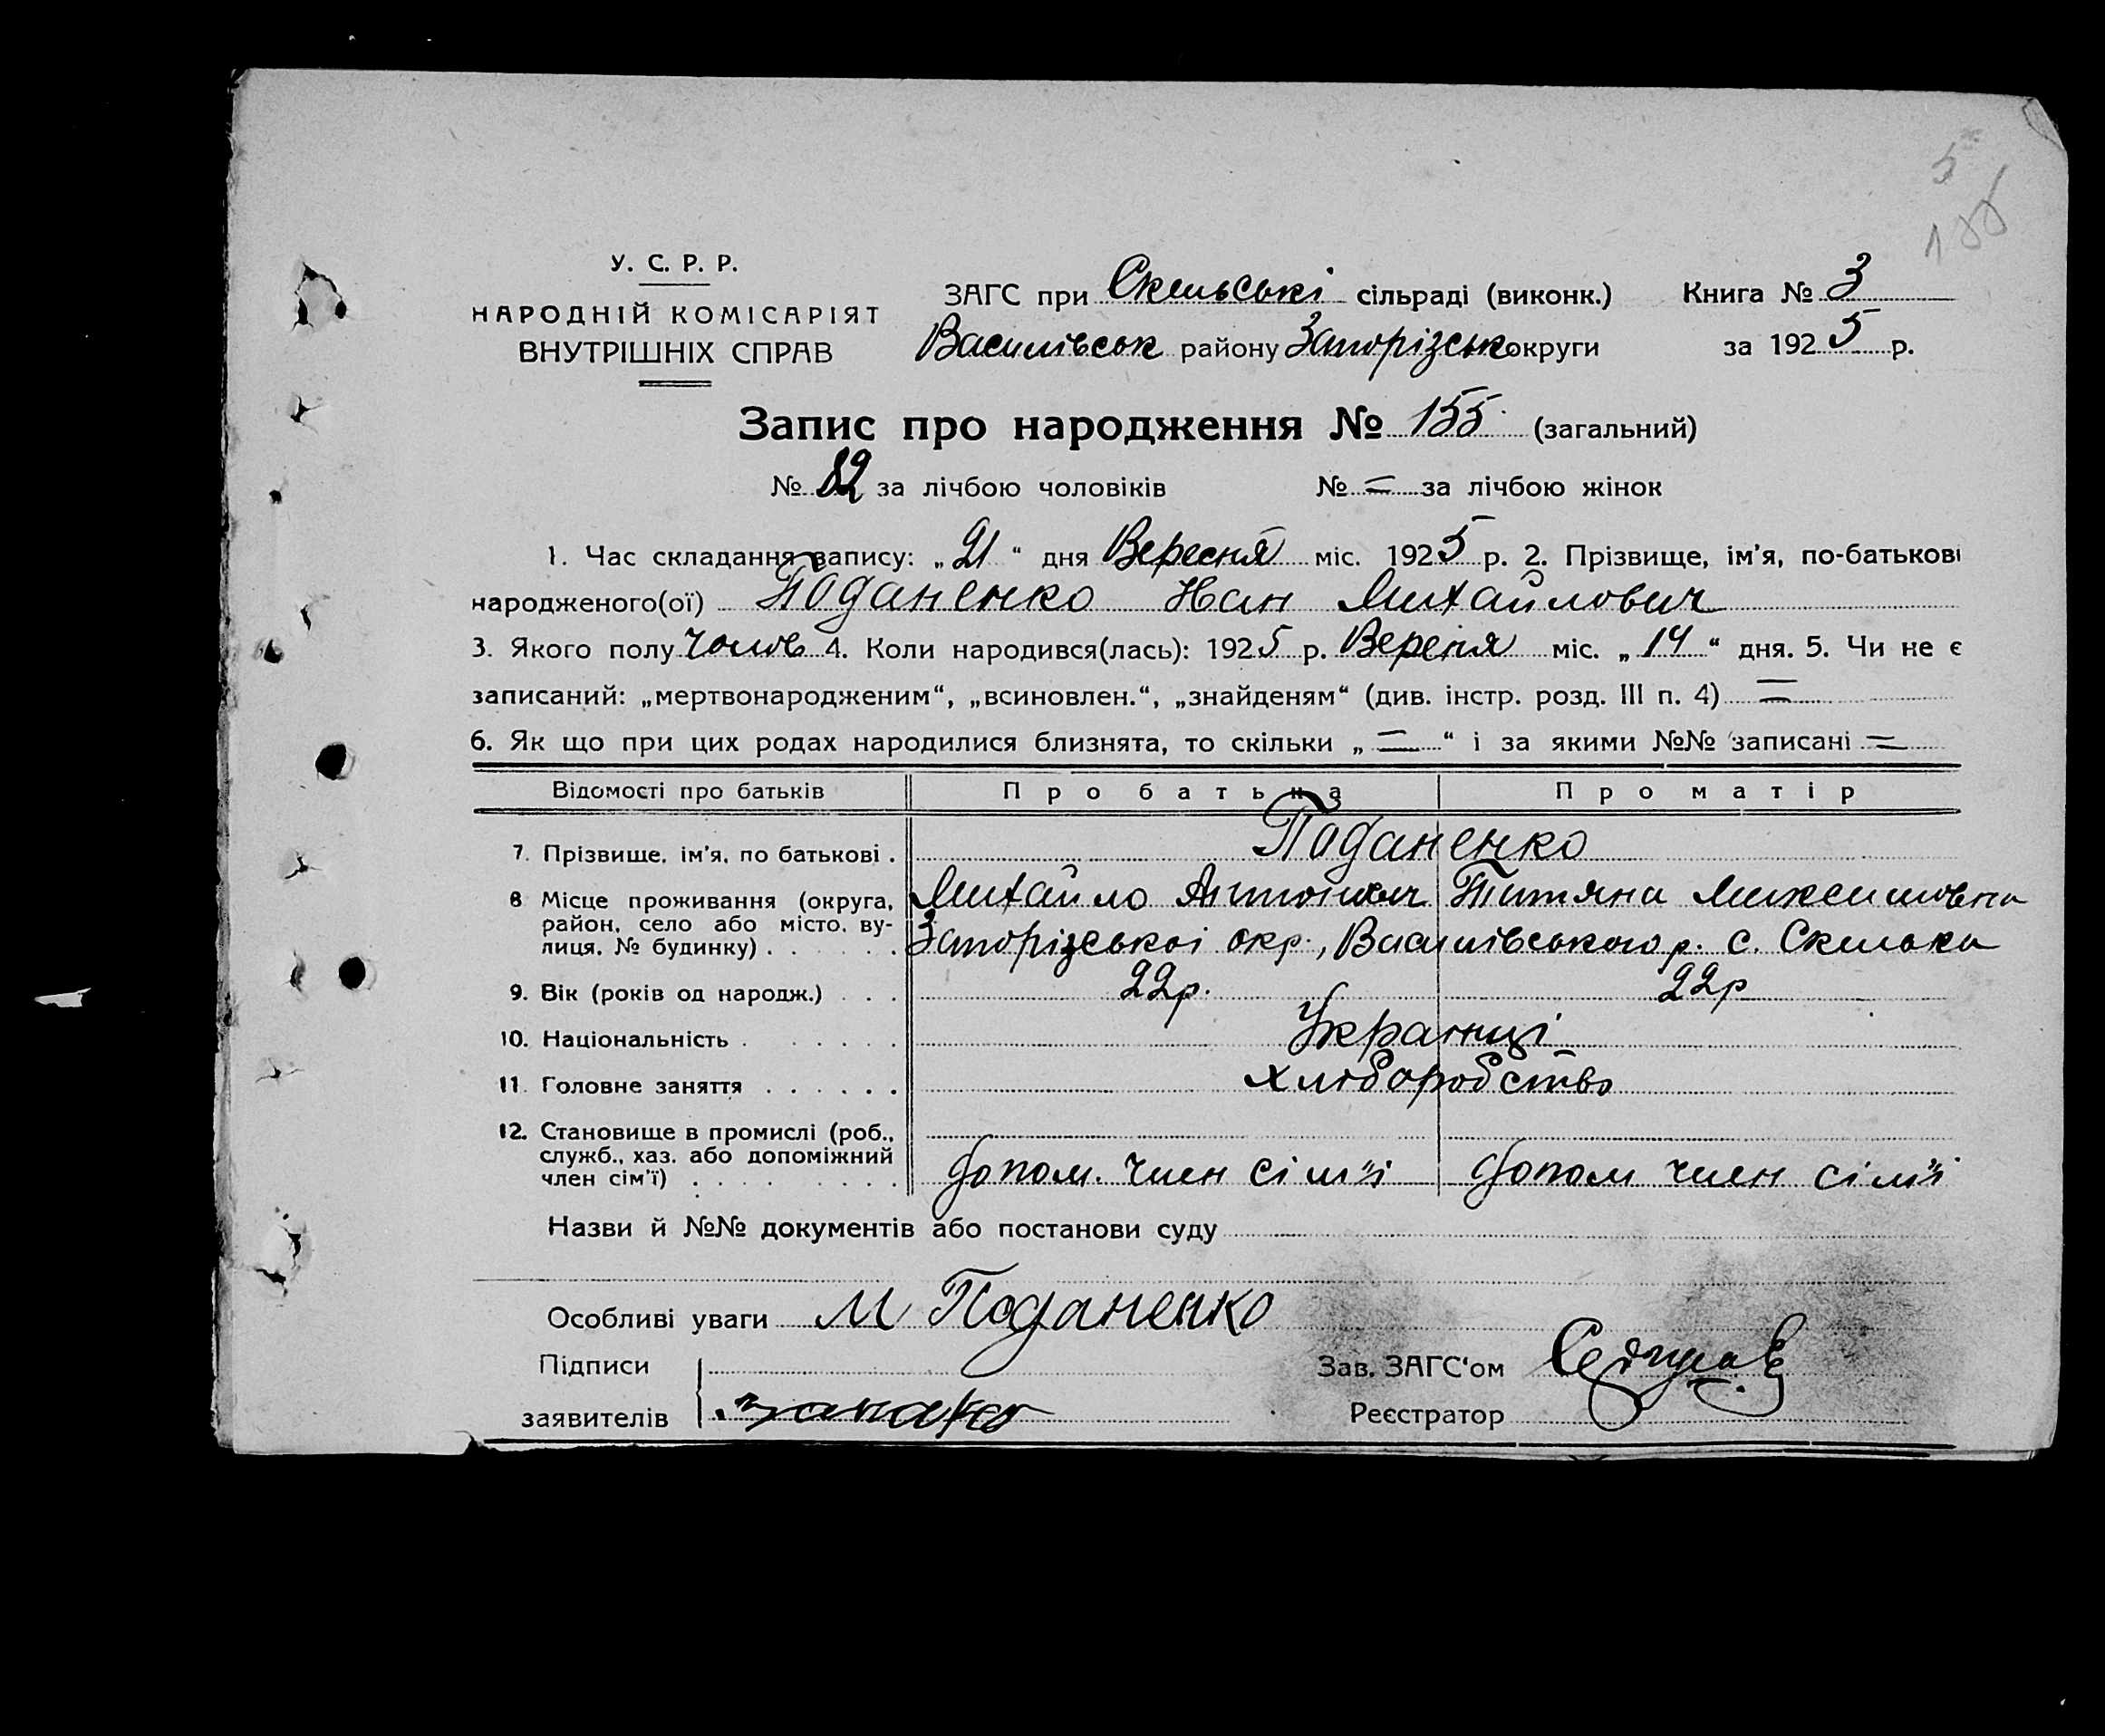 5
188
У. С. Р. Р.
НАРОДНІЙ КОМІСАРІЯТ
ВНУТРІШНІХ СПРАВ
ЗАГС при Скельські сільраді (виконк.) Книга № 3
Василівськ району Запорізськ округи за 1925 р.
Запис про народження № 155 (загальний)
№ 82 за лічбою чоловіків № = за лічбою жінок
1. Час складання запису: „21“ дня Вересня міс. 1925 р. 2. Прізвище, ім'я, по-батькові
народженого(ої) Поданенко Иван Михайлович
3. Якого полу чолов 4. Коли народився(лась): 1925 р. Вересня міс. „14“ дня. 5. Чи не є
записаний: „мертвонародженим“, „всиновлен.“, „знайденям“ (див. інстр. розд. III п. 4) =
6. Як що при цих родах народилися близнята, то скільки „=“ і за якими №№ записані =
Відомості про батьків Про батька Про матір
7. Прізвище, ім'я, по батькові . Поданенко
8 Місце проживання (округа, Михайло Антонович Титяна Максимовна
район, село або місто, ву-
лиця, № будинку) . . . . . . Запорізської окр., Василівського р. с. Скельки
9. Вік (років од народж.) . . . 22р. 22р
10. Національність . . . . . . Українці
11. Головне заняття . . . . . . хліборобство
12. Становище в промислі (роб.,
служб., хаз. або допоміжний
член сім'ї) . . . . . . . . допом. член сім'ї допом член сім'ї
Назви й №№ документів або постанови суду
Особливі уваги М Поданенко
Підписи Зав. ЗАГС'ом
заявителів Реєстратор